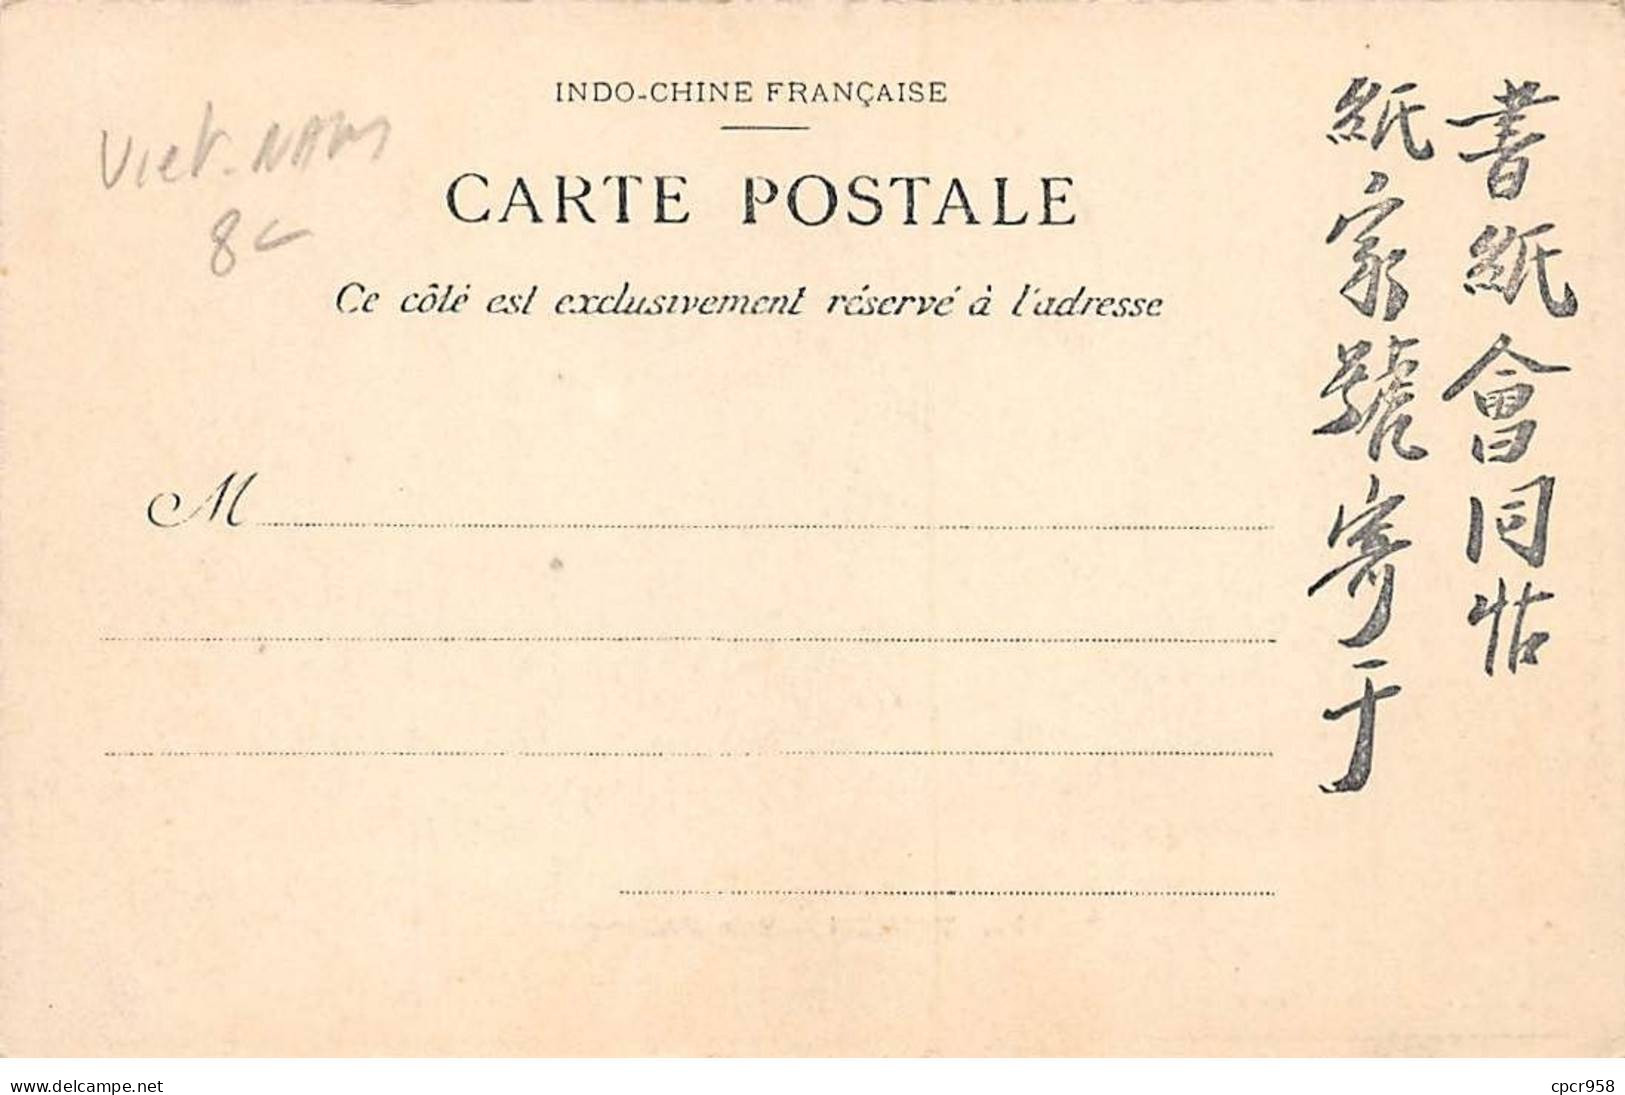 INDO-CHINE FRANÇAISE
CARTE POSTALE
Ce côté est exclusivement réservé à l'adresse
Viet-NAM
8
M
書紙會同帖
紙家號寄于
www.delcampe.net
cpcr958